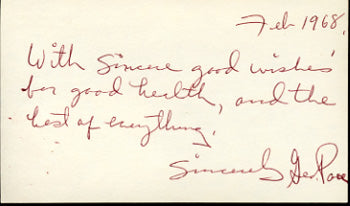 Feb 1968.
With Sincere good wishes
for good health, and the
best of everything.
Sincerely Geo. Pace